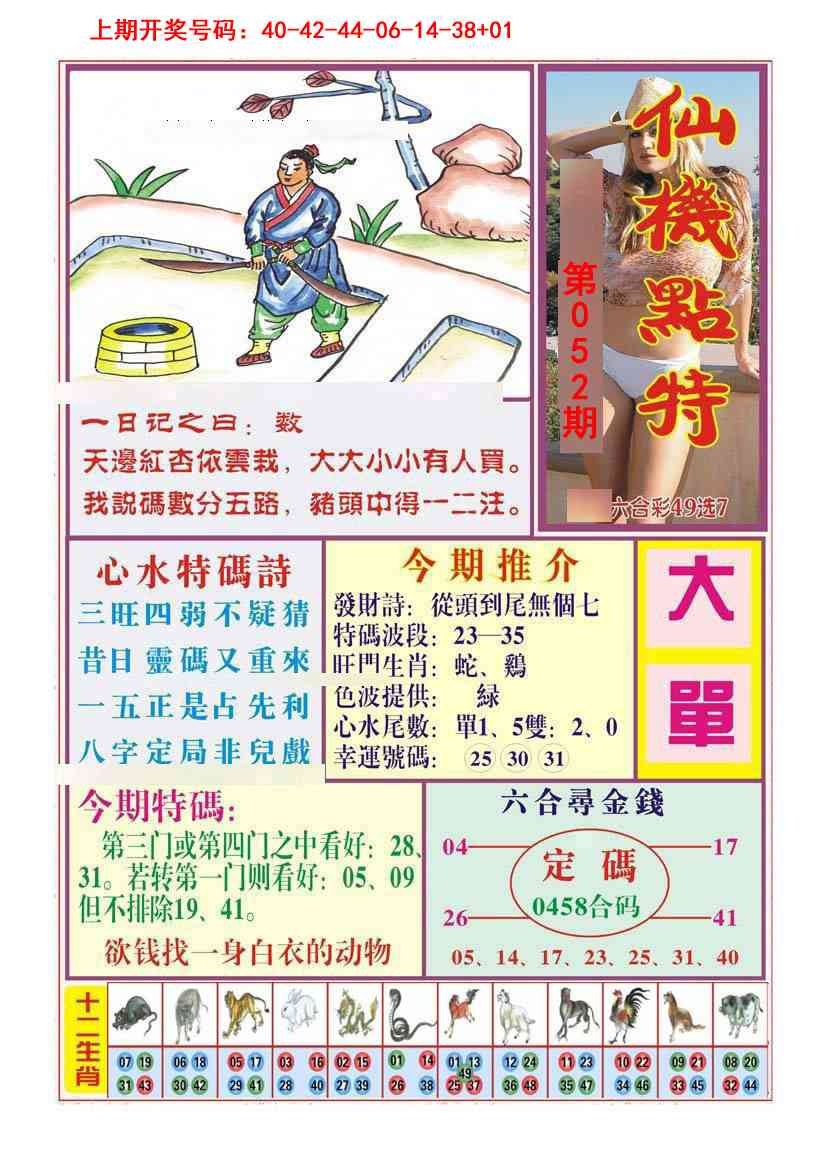 上期开奖号码：40-42-44-06-14-38+01
仙機點特
第052期
六合彩49选7
一日记之曰：数
天邊紅杏依雲栽，大大小小有人買。
我説碼數分五路，豬頭中得一二注。
心水特碼詩
三旺四弱不疑猜
昔日靈碼又重來
一五正是占先利
八字定局非兒戲
今期推介
發財詩：從頭到尾無個七
特碼波段：23—35
旺門生肖：蛇、鷄
色波提供：　緑
心水尾數：單1、5雙：2、0
幸運號碼：25 30 31
大
單
今期特碼：
第三门或第四门之中看好：28、
31。若转第一门则看好：05、09
但不排除19、41。
欲钱找一身白衣的动物
六合尋金錢
04 17
定碼
0458合码
26 41
05、14、17、23、25、31、40
十二生肖
07 19 06 18 05 17 03 16 02 15 01 14 01 13 12 24 11 23 10 22 09 21 08 20
49
31 43 30 42 29 41 28 40 27 39 26 38 25 37 36 48 35 47 34 46 33 45 32 44